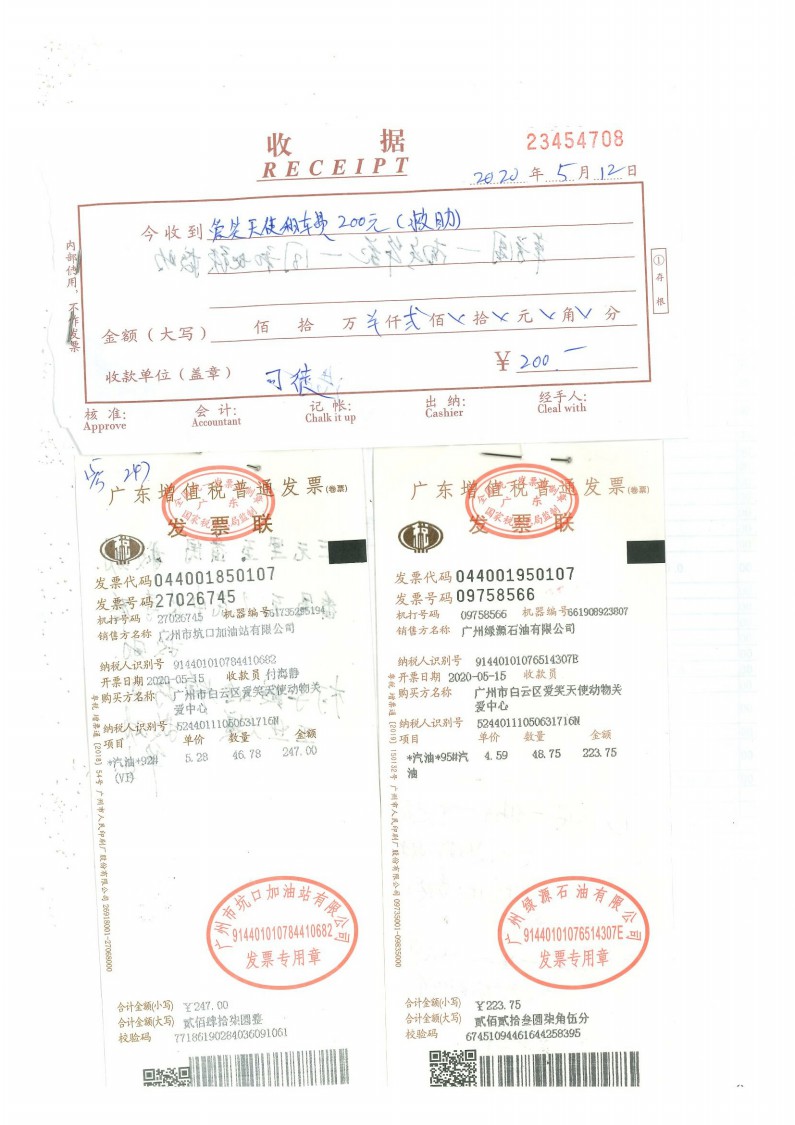 收 据
RECEIPT
23454708
2020 年 5 月 12 日
今收到 爱笑天使租车费 200元 (救助)
金额（大写） 佰 拾 万 仟 贰 佰 拾 元 角 分
收款单位（盖章） 司徒 ¥ 200.—
核 准: 会 计: 记 帐: 出 纳: 经手人:
Approve Accountant Chalk it up Cashier Cleal with
内部使用，不作发票
①存根
247
广东增值税普通发票(卷票)
发 票 联
发票代码 044001850107
发票号码 27026745
机打号码 27026745 机器编号 661735285194
销售方名称 广州市坑口加油站有限公司
纳税人识别号 914401010784410682
开票日期 2020-05-15 收款员 付海静
购买方名称 广州市白云区爱笑天使动物关
爱中心
纳税人识别号 52440111050631716N
项目 单价 数量 金额
*汽油*92# 5.28 46.78 247.00
广州市坑口加油站有限公司
914401010784410682
发票专用章
合计金额(小写) ¥247.00
合计金额(大写) 贰佰肆拾柒圆整
校验码 77186190284036091061
广东增值税普通发票(卷票)
发 票 联
发票代码 044001950107
发票号码 09758566
机打号码 09758566 机器编号 661908923807
销售方名称 广州绿源石油有限公司
纳税人识别号 91440101076514307E
开票日期 2020-05-15 收款员
购买方名称 广州市白云区爱笑天使动物关
爱中心
纳税人识别号 52440111050631716N
项目 单价 数量 金额
*汽油*95#汽 4.59 48.75 223.75
油
广州绿源石油有限公司
91440101076514307E
发票专用章
合计金额(小写) ¥223.75
合计金额(大写) 贰佰贰拾叁圆柒角伍分
校验码 67451094461644258395